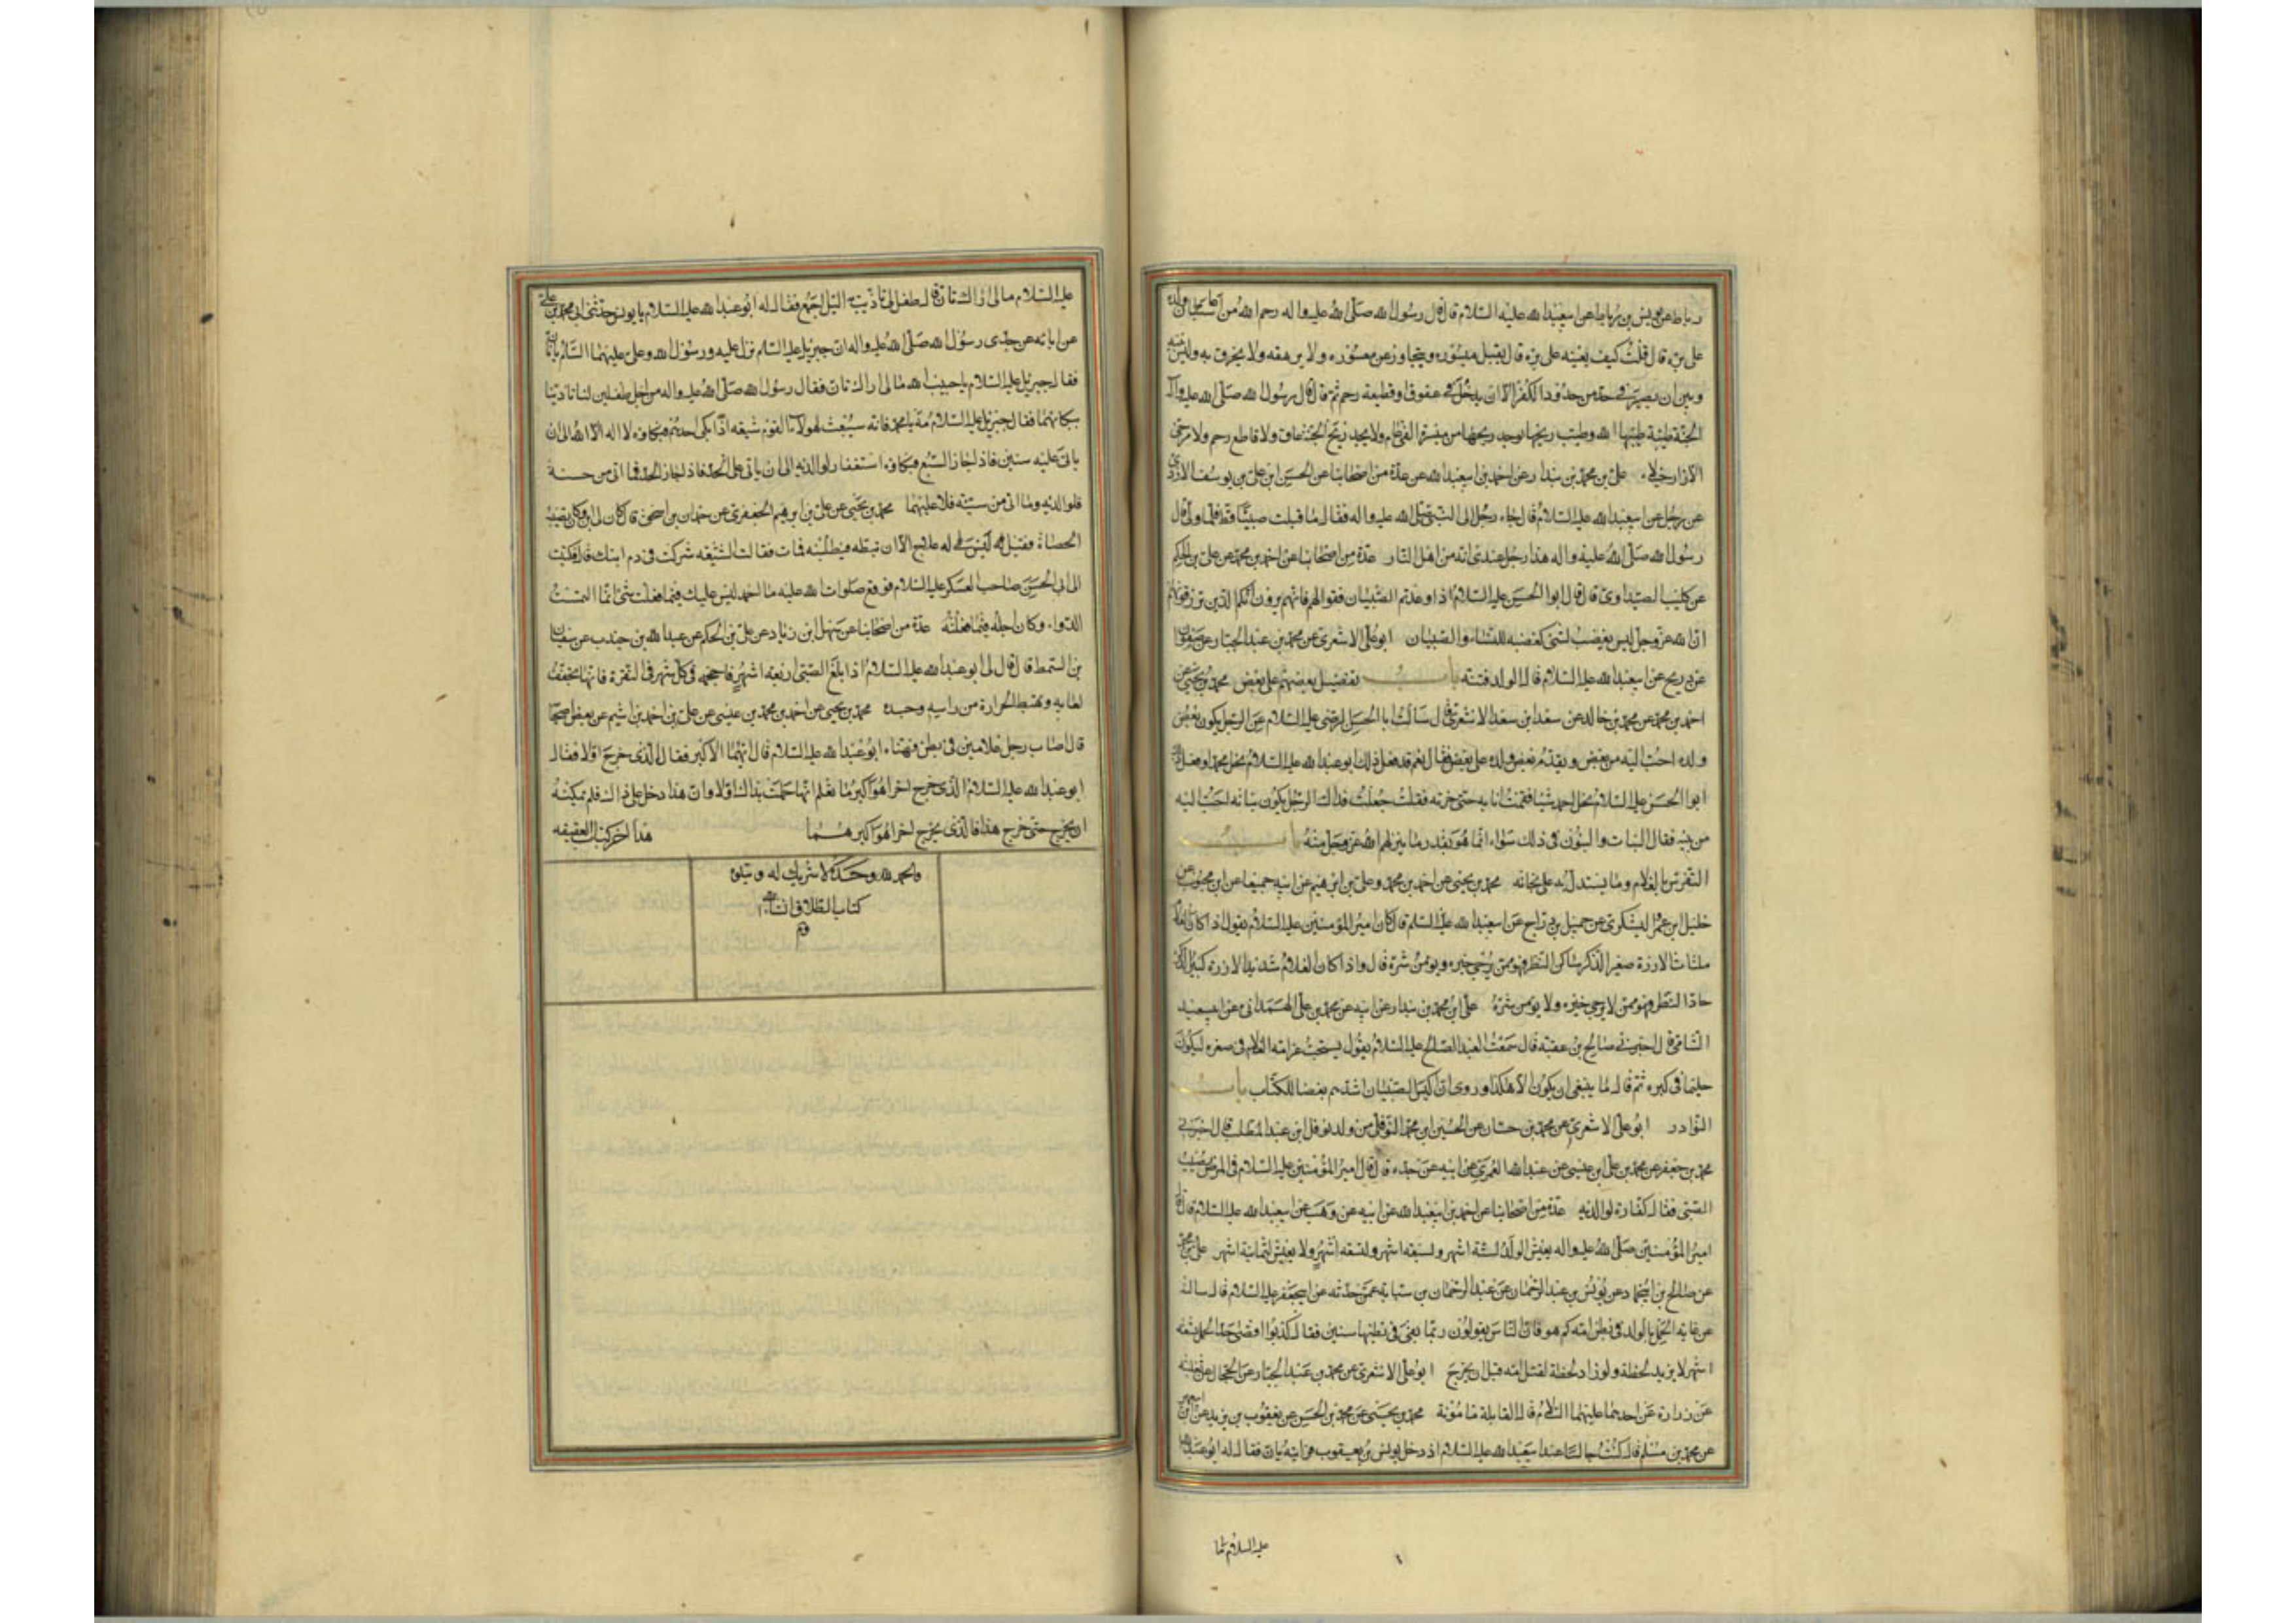 رباط عن يونس بن رباط عن ابيعبد الله عليه السلام قال قال رسول الله صلى الله عليه واله رحم الله من اعان ولده
على بره قال قلت كيف يعينه على بره قال يقبل ميسوره ويتجاوز عن معسوره ولا يرهقه ولا يخرق به وليس بينه
وبين ان يصير في حد من حدود الكفر الا ان يدخل في عقوق او قطيعة رحم ثم قال قال رسول الله صلى الله عليه واله
الجنة طيبة طيبها الله وطيب ريحها يوجد ريحها من مسيرة الفي عام ولا يجد ريح الجنة عاق ولا قاطع رحم ولا مرخى
الازار خيلاء علي بن محمد بن بندار عن احمد بن ابيعبد الله عن عدة من اصحابنا عن الحسن ابن علي بن يوسف الازدي
عن رجل عن ابيعبد الله عليه السلام قال جاء رجل الى النبي صلى الله عليه واله فقال ما قبلت صبيا قط فلما ولى قال
رسول الله صلى الله عليه واله هذا رجل عندي انه من اهل النار عدة من اصحابنا عن احمد بن محمد عن علي بن الحكم
عن كليب الصيداوي قال قال ابو الحسن عليه السلام اذا وعدتم الصبيان ففوا لهم فانهم يرون انكم الذين ترزقونهم
ان الله عز وجل ليس يغضب لشئ كغضبه للنساء والصبيان ابو علي الاشعري عن محمد بن عبد الجبار عن صفوان
عن ذريح عن ابيعبد الله عليه السلام قال الولد فتنة باب تفضيل بعضهم على بعض محمد بن يحيى عن
احمد بن محمد عن محمد بن خالد عن سعد ابن سعد الاشعري قال سالت ابا الحسن الرضي عليه السلام عن الرجل يكون بعض
ولده احب اليه من بعض ويقدم بعض ولده على بعض فقال نعم قد فعل ذلك ابو عبد الله عليه السلام نحل محمدا وفعل ذلك
ابو الحسن عليه السلام نحل احمد شيئا فقمت انا به حتى حزته فقلت جعلت فداك الرجل يكون بناته احب اليه
من بنيه فقال البنات والبنون في ذلك سواء انما هو بقدر ما ينزلهم الله عز وجل منه باب
التفرس بالغلام وما يستدل به على نجابته محمد بن يحيى عن احمد بن محمد وعلي بن ابرهيم عن ابيه جميعا عن ابن محبوب عن
خليل ابن عمرو اليشكري عن جميل بن دراج عن ابيعبد الله عليه السلم قال كان امير المؤمنين عليه السلام يقول اذا كان الغلام
ملتاث الازرة صغير الذكر ساكن النظر فهو ممن يرجى خيره ويؤمن شره قال واذا كان الغلام شديد الازرة كبير الذكر
حاد النظر فهو ممن لا يرجى خيره ولا يؤمن شره علي ابن محمد بن بندار عن ابيه عن محمد بن علي الهمداني عن ابيسعيد
الشامي قال اخبرني صالح بن عقبة قال سمعت العبد الصالح عليه السلام يقول يستحب عرامة الغلام في صغره ليكون
حليما في كبره ثم قال ما ينبغي ان يكون الا هكذا وروى ان اكيس الصبيان اشدهم بغضا للكتاب باب
النوادر ابو علي الاشعري عن محمد بن حسان عن الحسين ابن محمد النوفلي من ولد نوفل ابن عبد المطلب قال اخبرني
محمد بن جعفر عن محمد بن علي ابن عيسى عن عبد الله العمري عن ابيه عن جده قال قال امير المؤمنين عليه السلام في المرض يصيب
الصبي فقال كفارة لوالديه عدة من اصحابنا عن احمد بن ابيعبد الله عن ابيه عن وهب عن ابيعبد الله عليه السلام قال قال
امير المؤمنين صلى الله عليه واله يعيش الولد لستة اشهر ولسبعة اشهر ولتسعة اشهر ولا يعيش لثمانية اشهر علي بن محمد
عن صالح بن ابيحماد عن يونس بن عبد الرحمان عن عبد الرحمان بن سيابة عمن حدثه عن ابيجعفر عليه السلام قال سالته
عن غاية الحمل بالولد في بطن امه كم هو فان الناس يقولون ربما بقي في بطنها سنين فقال كذبوا اقصى حد الحمل تسعة
اشهر لا يزيد لحظة ولو زاد لحظة لقتل امه قبل ان يخرج ابو علي الاشعري عن محمد بن عبد الجبار عن الحجال عن ثعلبة
عن زرارة عن احدهما عليهما السلام قال القابلة مامونة محمد بن يحيى عن محمد بن الحسن عن يعقوب بن يزيد عن ابن ابيعمير
عن محمد بن مسلم قال كنت جالسا عند ابيعبد الله عليه السلام اذ دخل يونس بن يعقوب فرايته يان فقال له ابو عبد الله
عليه السلام ما
عليه السلام مالي اراك تان قال طفل لي تاذيت به الليل اجمع فقال له ابو عبد الله عليه السلام يا يونس حدثني ابي محمد بن علي
عن ابائه عن جدي رسول الله صلى الله عليه واله ان جبريل عليه السلم نزل عليه ورسول الله وعلي عليهما السلام يانان
فقال جبريل عليه السلام يا حبيب الله مالي اراك تان فقال رسول الله صلى الله عليه واله من اجل طفلين لنا تاذينا
ببكائهما فقال جبريل عليه السلام مه يا محمد فانه سيبعث لهولاء القوم شيعة اذا بكى احدهم فبكاؤه لا اله الا الله الى ان
ياتي عليه سبع سنين فاذا جاز السبع فبكاؤه استغفار لوالديه الى ان ياتي على الحد فاذا جاز الحد فما اتى من حسنة
فلوالديه وما اتى من سيئة فلا عليهما محمد بن يحيى عن علي بن ابرهيم الجعفري عن حمدان بن اسحق قال كان لي ابن وكان يصيبه
الحصاة فقيل لي ليس له علاج الا ان تبطه فبططته فمات فقالت الشيعة شركت في دم ابنك قال فكتبت
الى ابي الحسن صاحب العسكر عليه السلام فوقع صلوات الله عليه يا احمد ليس عليك فيما فعلت شئ انما التمست
الدواء وكان اجله فيما فعلته عدة من اصحابنا عن سهل ابن زياد عن علي بن الحكم عن عبد الله بن جندب عن سفيان
بن السمط قال قال لي ابو عبد الله عليه السلام اذا بلغ الصبي اربعة اشهر فاحجمه في كل شهر في النقرة فانها تجفف
لعابه وتهبط الحرارة من راسه وجسده محمد بن يحيى عن احمد بن محمد بن عيسى عن علي بن احمد بن اشيم عن بعض اصحابه
قال اصاب رجل غلامين في بطن فهناه ابو عبد الله عليه السلام قال ايهما الاكبر فقال الذي خرج اولا فقال
ابو عبد الله عليه السلام الذي خرج اخرا هو اكبر اما تعلم انها حملت بذاك اولا وان هذا دخل على ذاك فلم يمكنه
ان يخرج حتى خرج هذا فالذي يخرج اخرا هو اكبر هما هذا اخر كتاب العقيقه
والحمد لله وحده لا شريك له ويتلوه
كتاب الطلاق انشاء الله